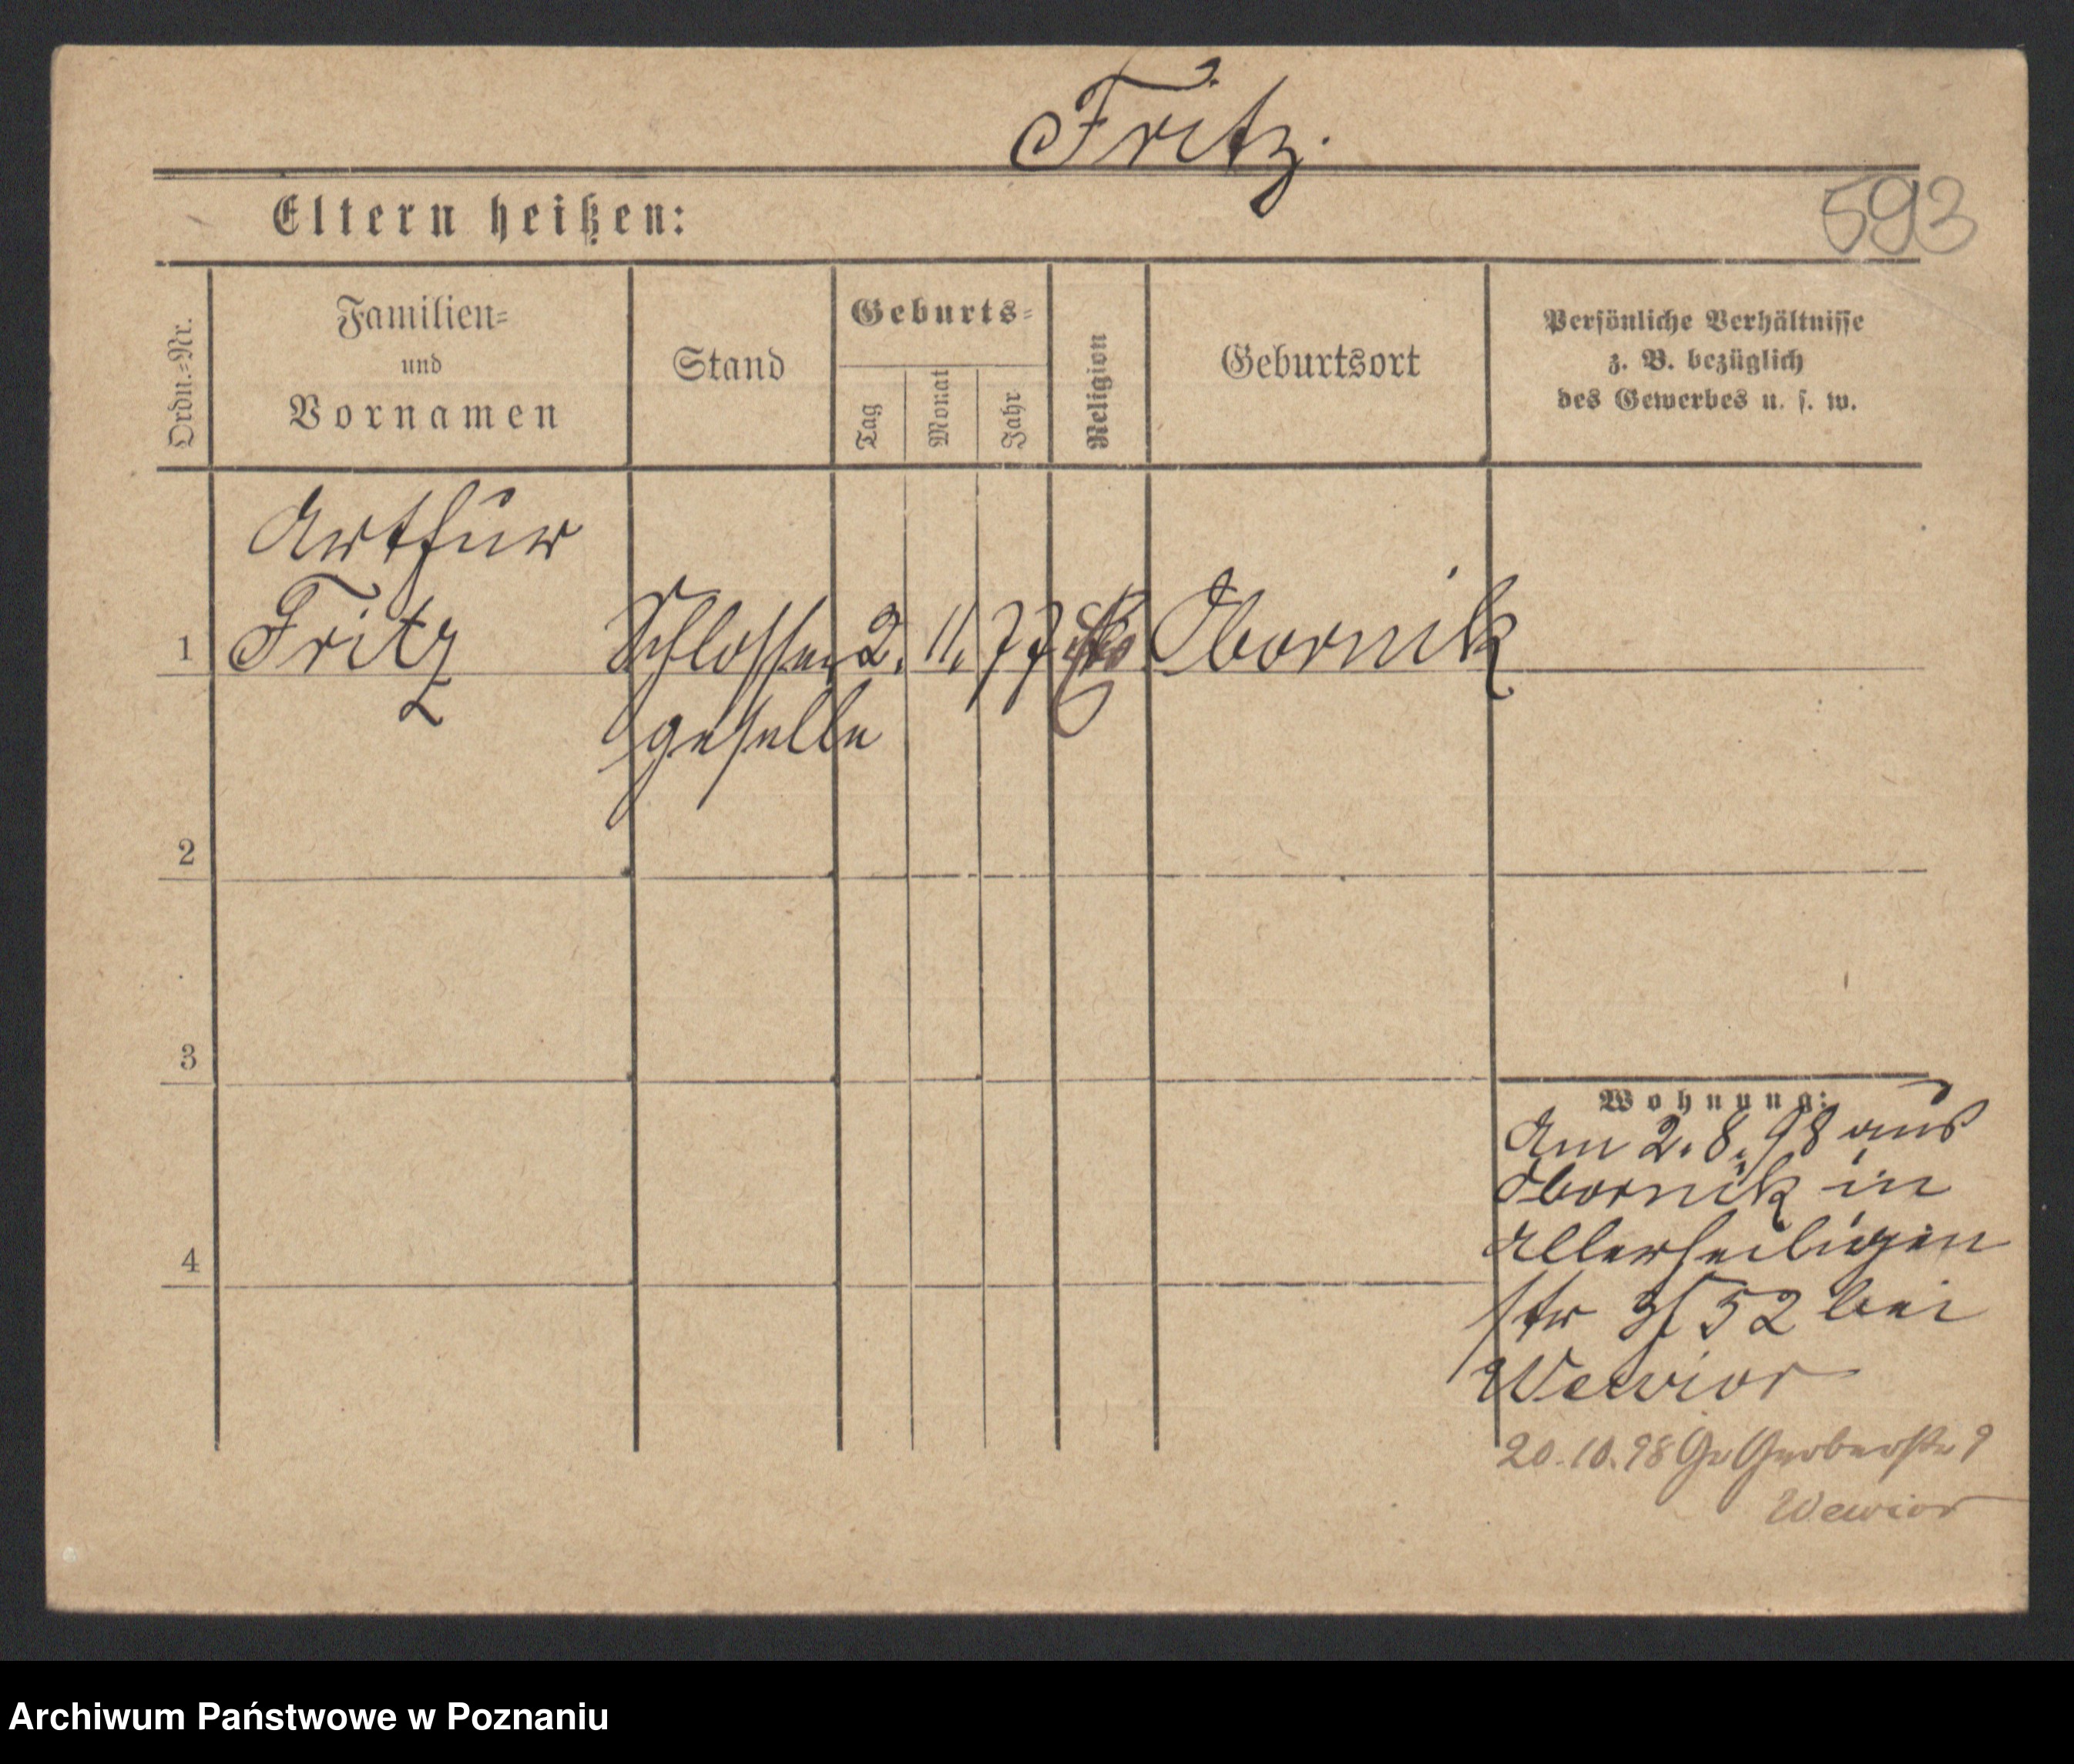 Fritz.
593
Eltern heißen:
Ordn.=Nr.
Familien=
und
Vornamen
Stand
Geburts=
Tag
Monat
Jahr
Religion
Geburtsort
Persönliche Verhältnisse
z. B. bezüglich
des Gewerbes u. s. w.
Arthur
1 Fritz Schlosser 2. 11. 77 Obornik
geselle
2
3
4
Wohnung:
Am 2. 8. 98 aus
Obornik in
Allerheiligen
str 52 bei
Wewior
20.10.98 Gr Gerberstr 9
Wewior
Archiwum Państwowe w Poznaniu